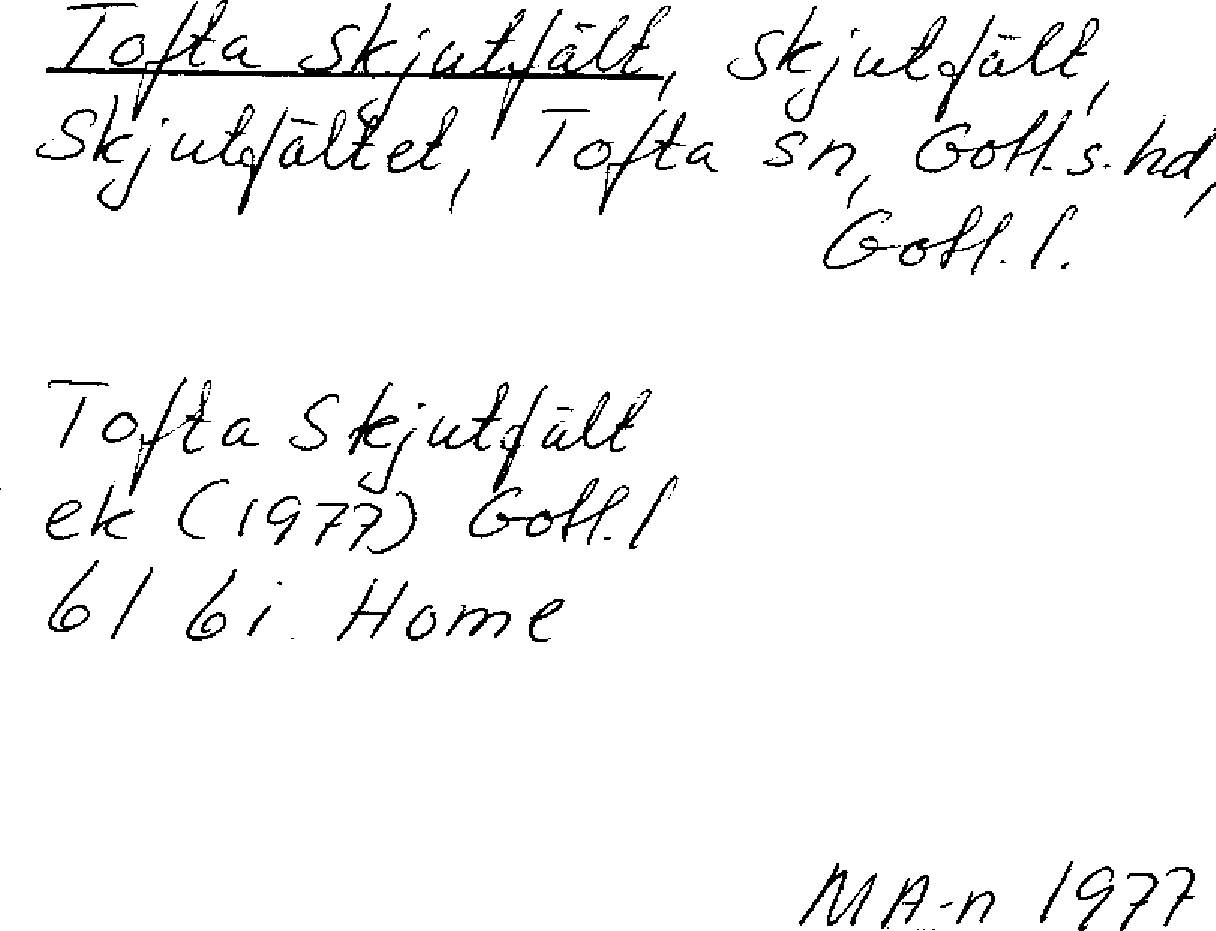 Tofta Skjutfält, Skjutfält,
Skjutfältet, Tofta sn, Gotl. s. hd,
Gotl. l.
Tofta Skjutfält
ek (1977) Gotl. l
6I 6i Home
MA-n 1977